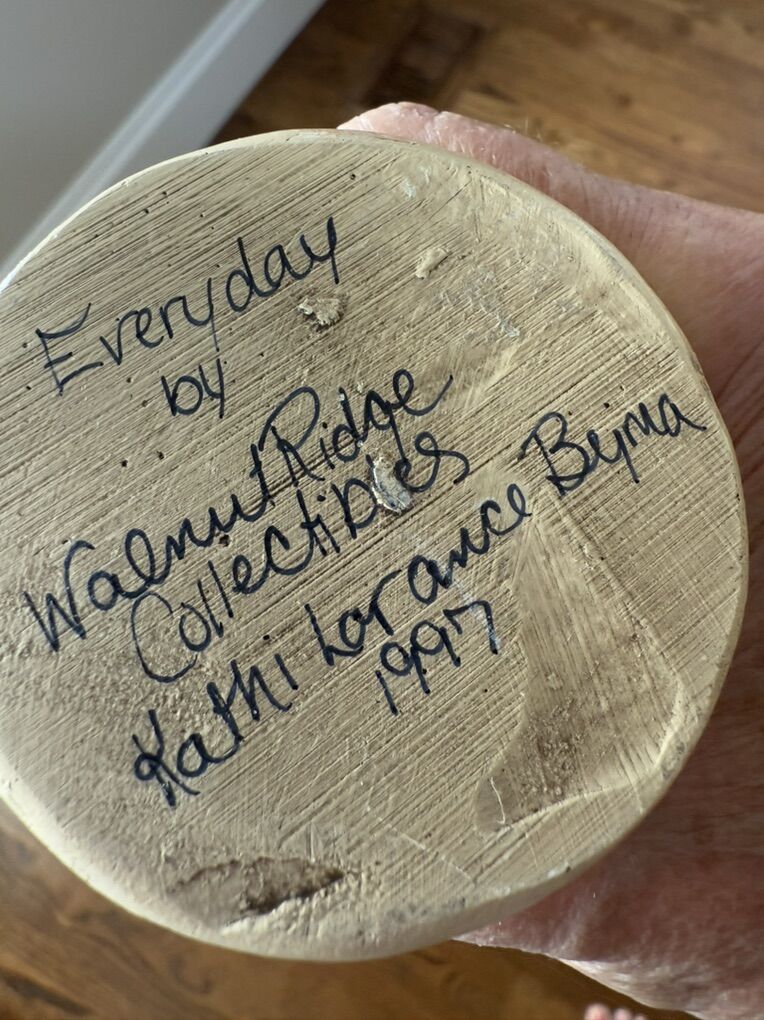 Everyday
by
Walnut Ridge
Collectibles
Kathi Lorance Bejma
1997